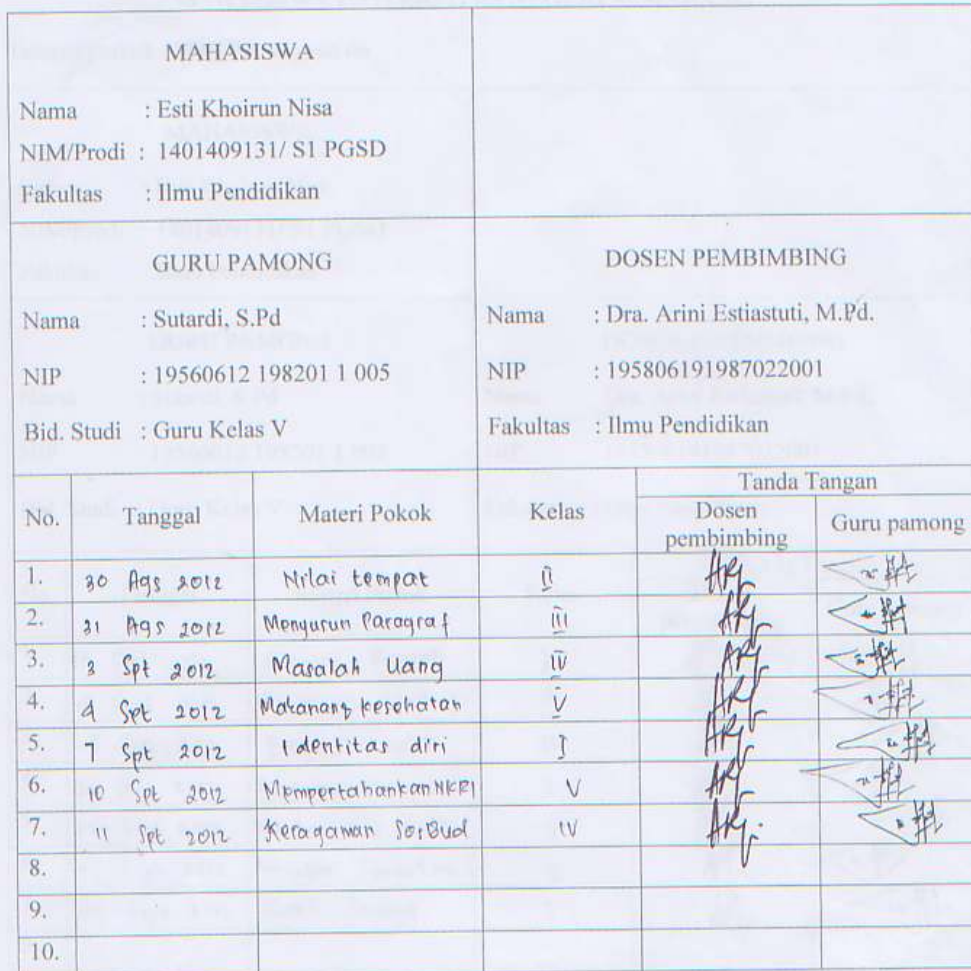 MAHASISWA
Nama : Esti Khoirun Nisa
NIM/Prodi : 1401409131/ S1 PGSD
Fakultas : Ilmu Pendidikan
GURU PAMONG
Nama : Sutardi, S.Pd
NIP : 19560612 198201 1 005
Bid. Studi : Guru Kelas V
DOSEN PEMBIMBING
Nama : Dra. Arini Estiastuti, M.Pd.
NIP : 195806191987022001
Fakultas : Ilmu Pendidikan
No. Tanggal Materi Pokok Kelas Tanda Tangan
Dosen pembimbing Guru pamong
1. 30 Ags 2012 Nilai tempat II
2. 31 Ags 2012 Menyusun Paragraf III
3. 3 Spt 2012 Masalah Uang IV
4. 4 Spt 2012 Makanan kesehatan V
5. 7 Spt 2012 Identitas diri I
6. 10 Spt 2012 Mempertahankan NKRI V
7. 11 Spt. 2012 Keragaman SosBud IV
8.
9.
10.